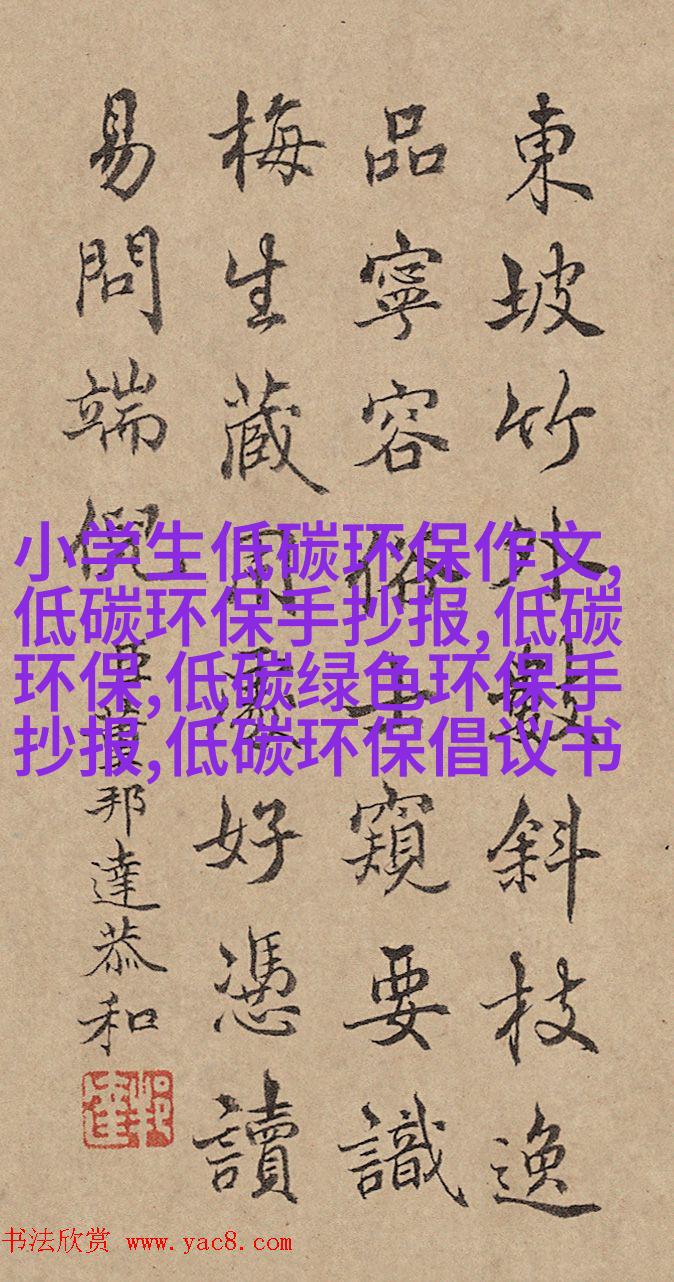 東坡竹外數斜枝逸
品寧容俗士窺要識
梅生藏用處好憑讀
易問端倪臣董邦達恭和
小学生低碳环保作文,
低碳环保手抄报,低碳
环保,低碳绿色环保手
抄报,低碳环保倡议书
书法欣赏 www.yac8.com